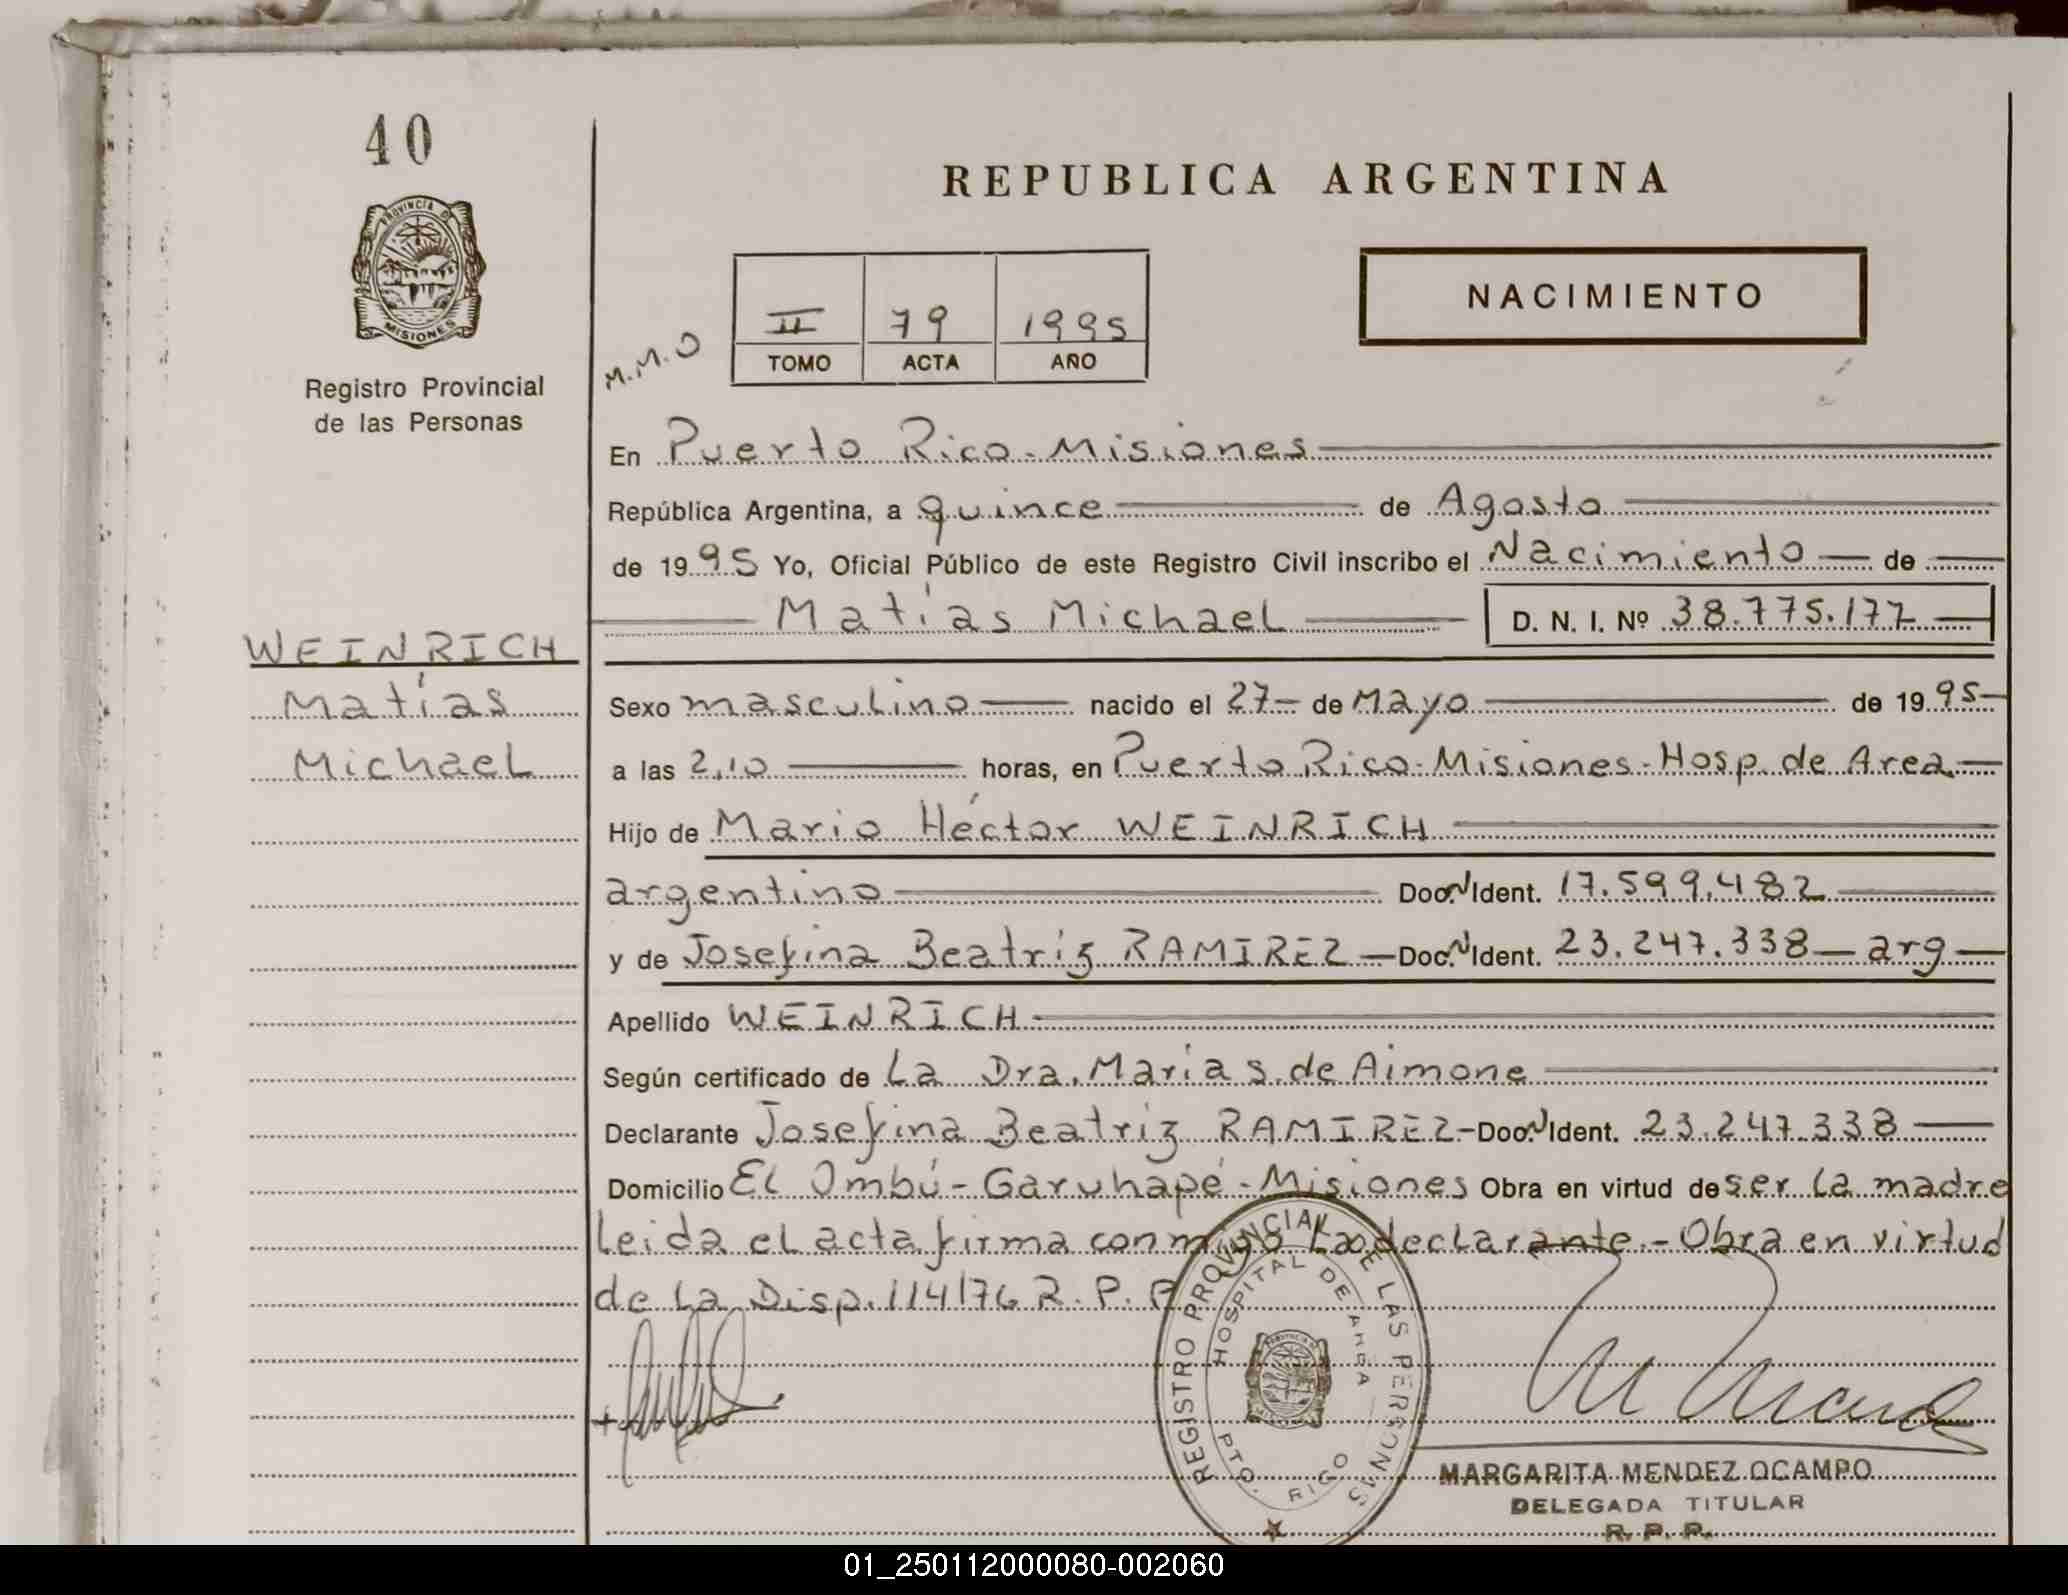 40
REPUBLICA ARGENTINA
PROVINCIA D
MISIONES
Registro Provincial
de las Personas
NACIMIENTO
II 79 1995
TOMO ACTA AÑO
M.M.O
En Puerto Rico - Misiones
República Argentina, a quince de Agosto
de 1995 Yo, Oficial Público de este Registro Civil inscribo el Nacimiento de
Matías Michael D. N. I. Nº 38.775.177
WEINRICH
Matías
Michael
Sexo masculino nacido el 27 de Mayo de 1995
a las 2,10 horas, en Puerto Rico - Misiones - Hosp. de Area
Hijo de Mario Héctor WEINRICH
argentino Doc. N Ident. 17.599.482
y de Josefina Beatriz RAMIREZ - Doc. N Ident. 23.247.338 - arg
Apellido WEINRICH
Según certificado de La Dra. Marías de Aimone
Declarante Josefina Beatriz RAMIREZ - Doc. N Ident. 23.247.338
Domicilio El Ombú - Garuhapé - Misiones Obra en virtud de ser la madre
leida el acta firma conmigo la declarante. - Obra en virtud
de la Disp. 114176 R. P. P
REGISTRO PROVINCIAL DE LAS PERSONAS
HOSPITAL DE AREA
PTO. RICO
MARGARITA MENDEZ OCAMPO
DELEGADA TITULAR
R. P. P.
01_250112000080-002060